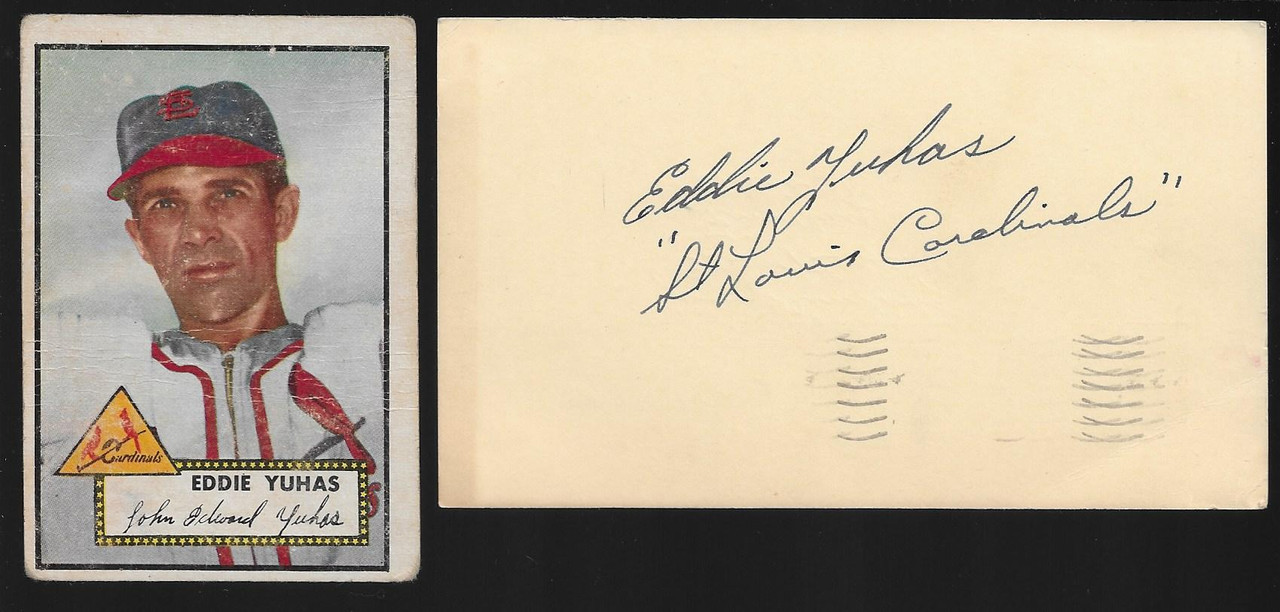 STL
Cardinals
EDDIE YUHAS
John Edward Yuhas
Eddie Yuhas
"St Louis Cardinals"